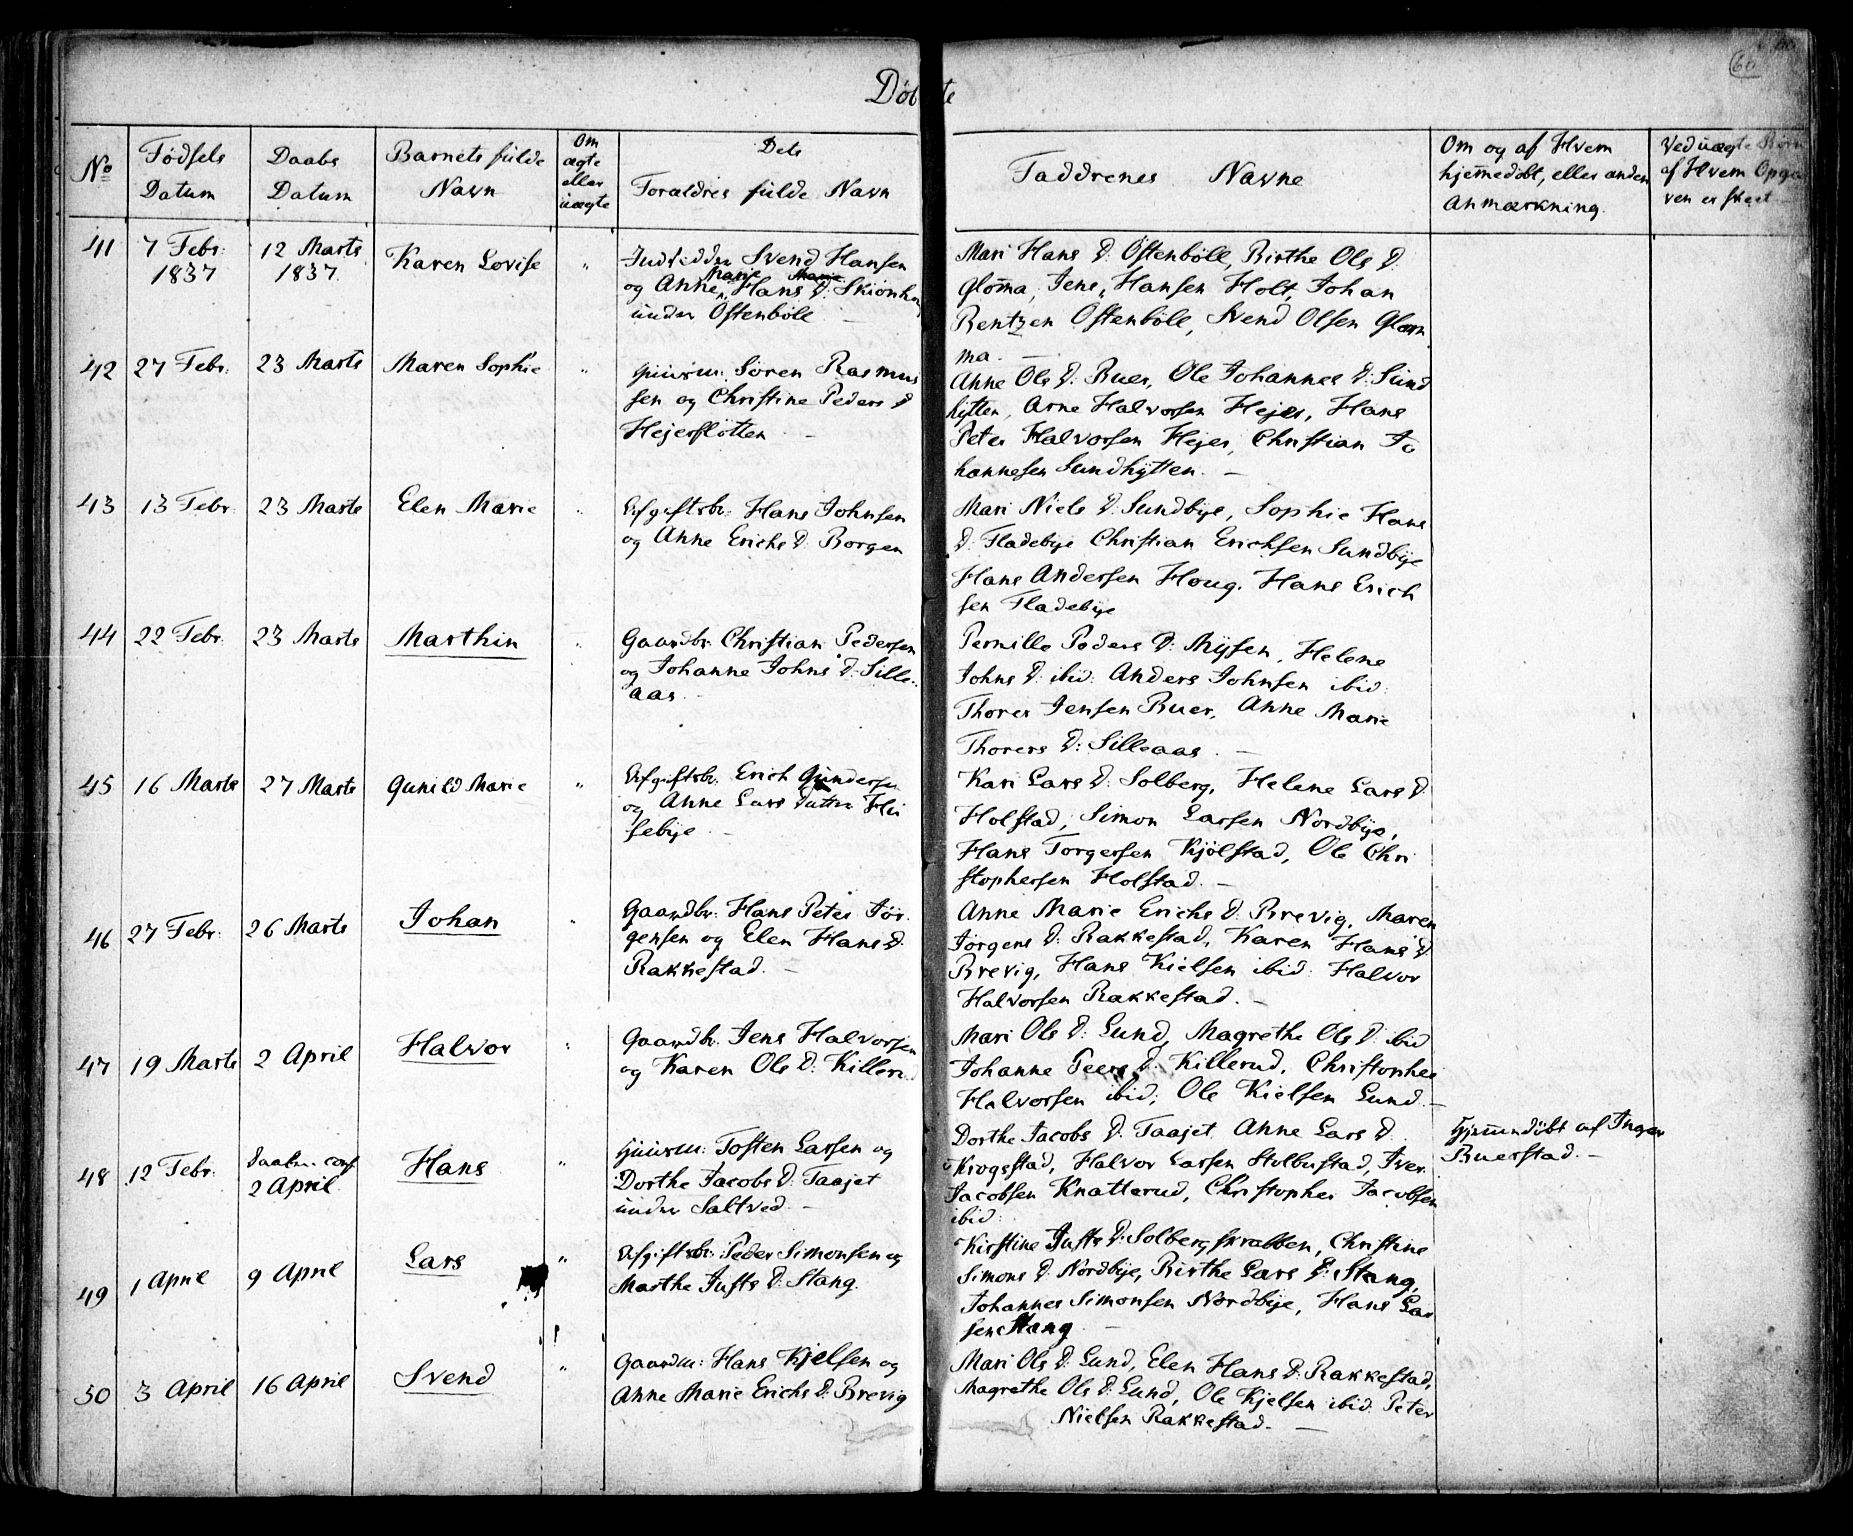 Døbte
60
No
Fødsels Datum
Daabs Datum
Barnets fulde Navn
Om ægte eller uægte
Dets Forældres fulde Navn
Faddrenes Navne
Om og af Hvem hjemmedøbt, eller anden Anmærkning.
Ved uægte Børn af Hvem Opgaven er skeet
41
7 Febr: 1837
12 Marts 1837.
Karen Lovise
"
Inderster Svend Hansen
og Anne Marie Hans D: Skiønhoug
under Østenbøll
Mari Hans D: Østenbøll, Birthe Ols D:
Glomma, Jens Hansen Holt, Johan
Bentzen Østenbøll, Svend Olsen Glom
ma.
42
27 Febr:
23 Marts
Maren Sophie
"
Huusm: Søren Rasmus
sen og Christine Peders D
Hejerslotten
Anne Ols D: Buer, Ole Johannes D: Sund
hytten, Arne Halvorsen Hejer, Hans
Peter Halvorsen Hejer, Christian Jo
hannesen Sundhytten.
43
13 Febr
23 Marts
Elen Marie
"
Afgiftsbr: Hans Johnsen
og Anne Erichs D: Borgen
Mari Niels D: Sundbye, Sophie Hans
D: Fladebye Christian Erichsen Sundbye
Hans Andersen Houg. Hans Erich
sen Fladebye
44
22 Febr.
23 Marts
Marthin
"
Gaardbr: Christian Pedersen
og Johanne Johns D: Sille
aas.
Pernille Peders D: Mysen, Helene
Johns D: ibid: Anders Johnsen ibid:
Thorer Jensen Buer, Anne Marie
Thorers D: Silleaas.
45
16 Marts
27 Marts
Gunild Marie
"
Afgiftsbr: Erich Gundersen
og Anne Lars Datter Hu
sebye.
Kari Lars D: Solberg, Helene Lars D
Holstad, Simon Larsen Nordbye,
Hans Torgersen Kjølstad, Ole Chri
stophersen Holstad.
46
27 Febr:
26 Marts
Johan
"
Gaardbr: Hans Peter Jør
gensen og Elen Hans D:
Rakkestad.
Anne Marie Erichs D: Brevig, Maren
Jørgens D: Rakkestad, Karen Hans D
Brevig, Hans Kielsen ibid: Halvor
Halvorsen Rakkestad.
47
19 Marts
2 April
Halvor
"
Gaardbr. Jens Halvorsen
og Karen Ols D: Killerud
Mari Ols D: Lund, Magrethe Ols D: ibid
Johanne Peers D: Killerud, Christopher
Halvorsen ibid; Ole Kielsen Lund.
48
12 Febr:
Daaben conf 2 April.
Hans
"
Huusm: Tosten Larsen og
Dorthe Jacobs D: Taajet
under Saltved.
Dorthe Jacobs D. Taajet Anne Lars D.
Krogsstad, Halvor Larsen Stolbustad, Iver
Jacobsen Knatterud, Christopher Jacobsen
ibid:
Hjemmedøbt af Inger
Buerstad.
49
1 April
9 April
Lars
"
Afgiftsbr: Peder Simonsen og
Marthe Justs D: Stang.
Kirstine Justs D: Solbergskrabben, Christine
Simons D: Nordbye, Birthe Lars D: Stang,
Johannes Simonsen Nordbye, Hans Lar
sen Stang
50
3 April
16 April
Svend
"
Gaardm: Hans Kjelsen og
Anne Marie Erichs D: Brevig
Mari Ols D: Lund, Elen Hans D: Rakkestad,
Magrethe Ols D: Lund, Ole Kjelsen ibid: Peter
Nielsen Rakkestad.